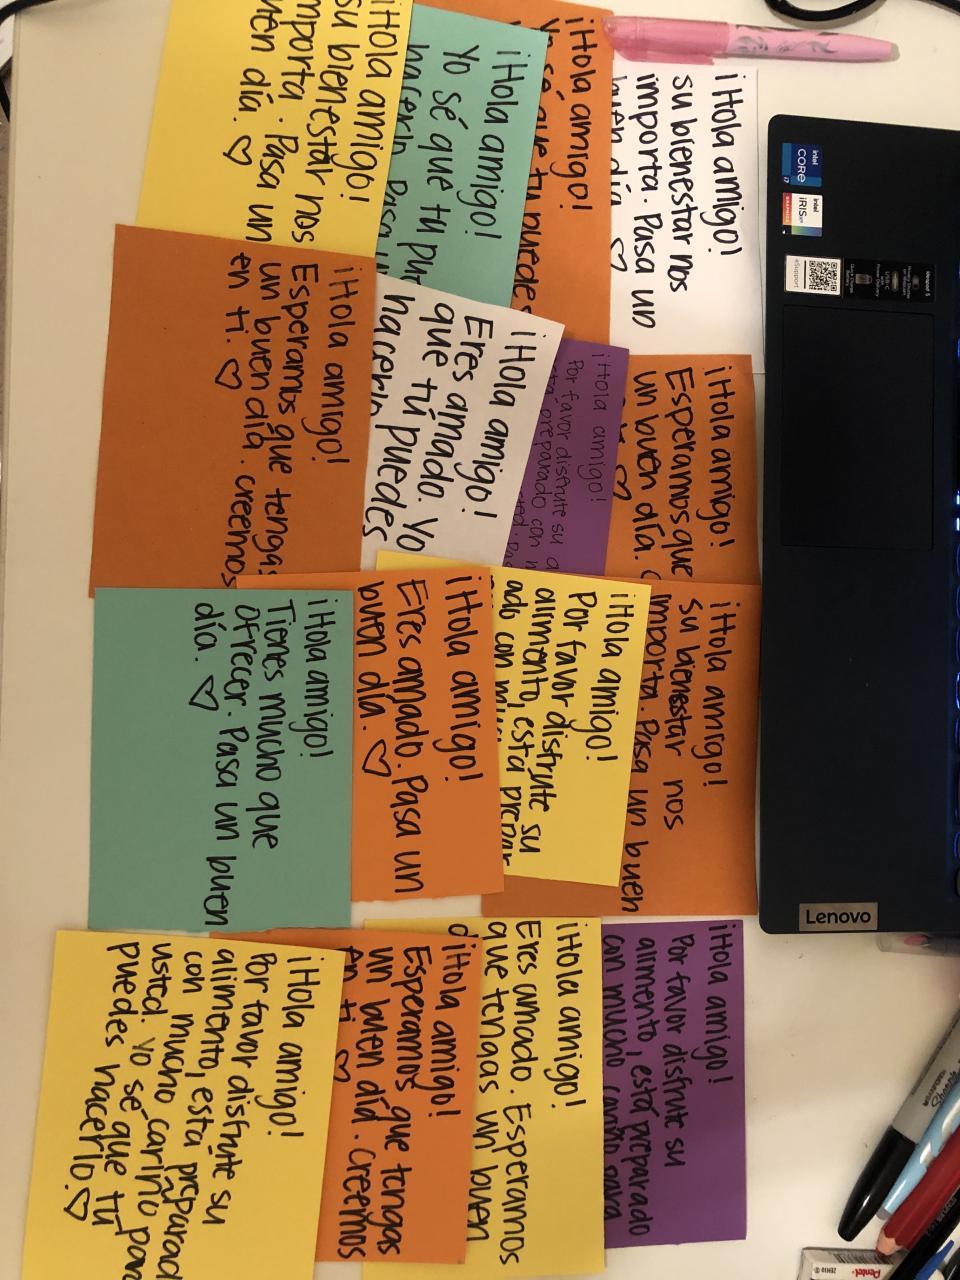 intel
CORE
i7
intel
iRIS xe
GRAPHICS
eSupport
Lenovo
Sharpie
Pentel
¡Hola amigo!
su bienestar nos
importa. Pasa un
buen día. ♡
¡Hola amigo!
Yo sé que tu puedes
¡Hola amigo!
Yo sé que tu
hacerlo. Pasa
¡Hola amigo!
su bienestar nos
importa. Pasa un
buen día. ♡
¡Hola amigo!
Esperamos que
un buen día.
♡
¡Hola amigo!
Por favor disfrute su
está preparado con
¡Hola amigo!
Eres amado. Yo
que tú puedes
hacerlo
¡Hola amigo!
Esperamos que tengas
un buen día. creemos
en ti. ♡
¡Hola amigo!
su bienestar nos
importa. Pasa un buen
¡Hola amigo!
Por favor disfrute su
alimento, está prepar
ado con
¡Hola amigo!
Eres amado. Pasa un
buen día. ♡
¡Hola amigo!
Tienes mucho que
ofrecer. Pasa un buen
día. ♡
¡Hola amigo!
Por favor disfrute su
alimento, está preparado
con mucho cariño para
¡Hola amigo!
Eres amado. Esperamos
que tengas un buen
¡Hola amigo!
Esperamos que tengas
un buen día. Creemos
en ti ♡
¡Hola amigo!
Por favor disfrute su
alimento, está preparad
con mucho cariño para
usted. Yo sé que tú
puedes hacerlo. ♡